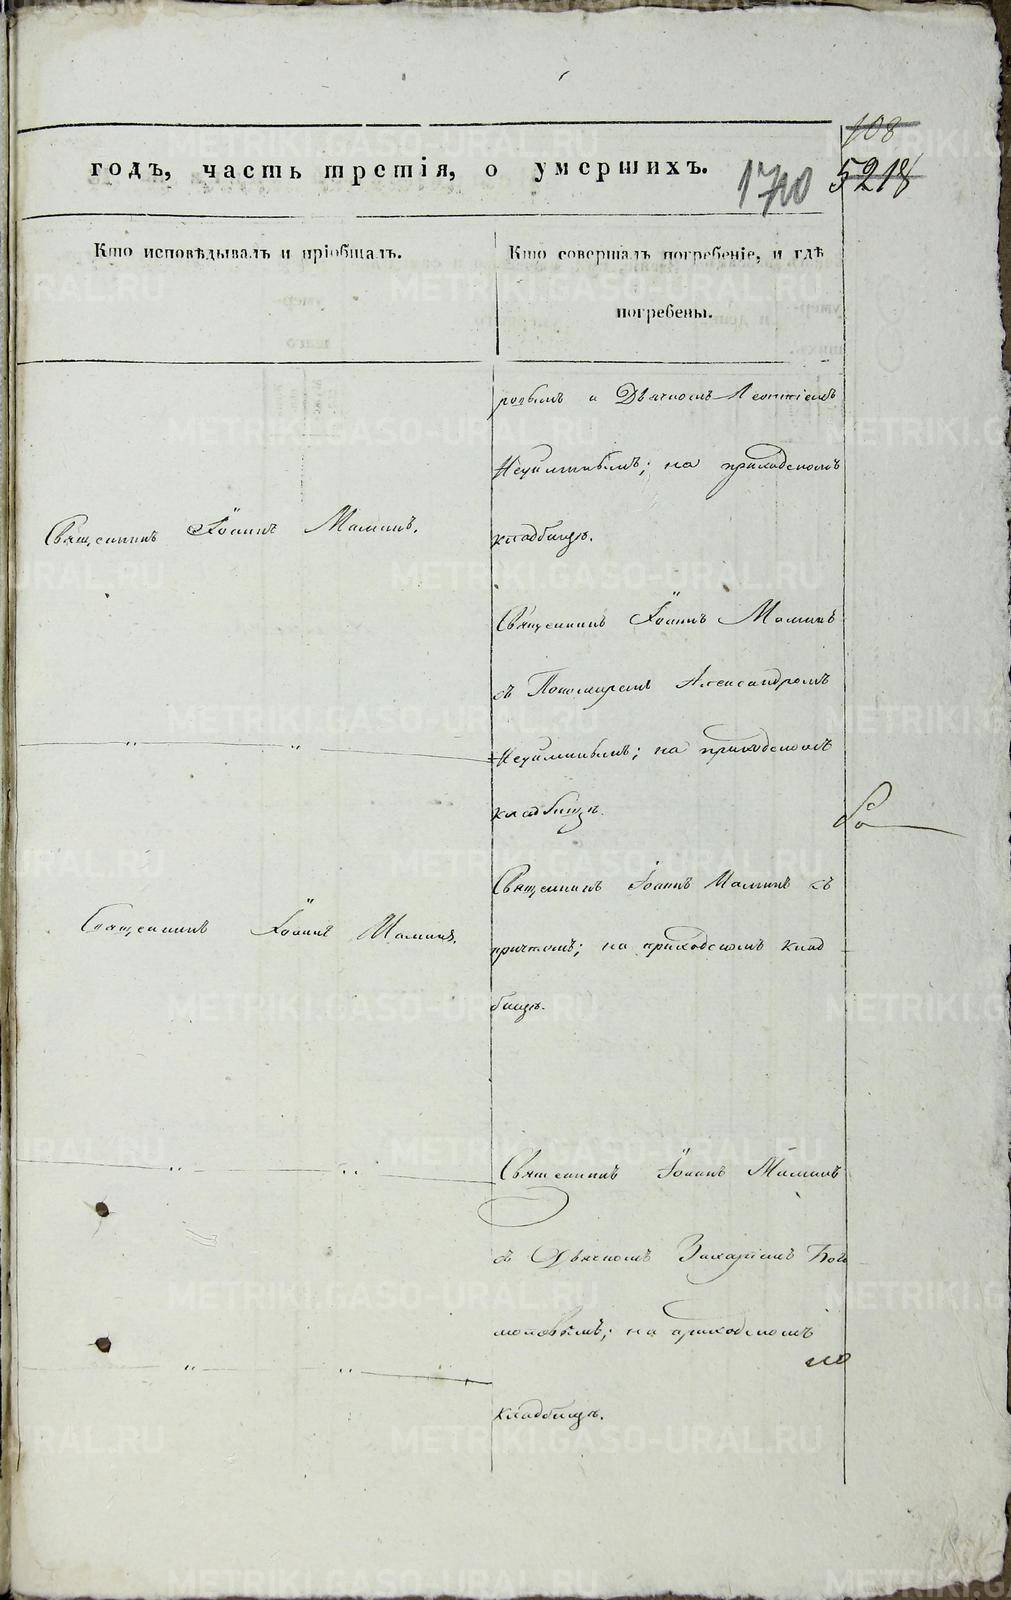 108
годъ, часть третія, о умершихъ.
1710 5218
Кто исповѣдывалъ и пріобщалъ.
Кто совершалъ погребеніе, и гдѣ
погребены.
и Дьячкомъ Леонтіемъ
на приходскомъ
кладбищѣ.
Священникъ Іоаннъ Маминъ.
Священникъ Іоаннъ Маминъ
съ Пономаремъ Александромъ
на приходскомъ
кладбищѣ.
Священникъ Іоаннъ Маминъ.
Священникъ Іоаннъ Маминъ съ
причтомъ; на приходскомъ клад
бищѣ.
Священникъ Іоаннъ Маминъ
съ Дьячкомъ Захаріемъ
на приходскомъ
кладбищѣ.
METRIKI.GASO-URAL.RU